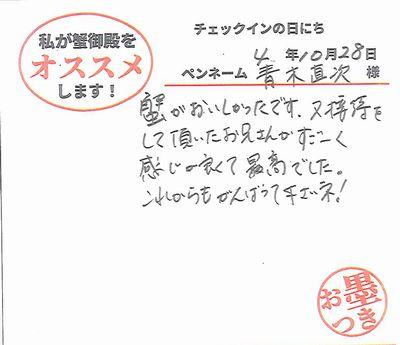 私が蟹御殿を
オススメ
します！
チェックインの日にち
4 年10月28日
ペンネーム 青木直次 様
蟹がおいしかったです。又接待を
して頂いたお兄さんがすごーく
感じが良くて最高でした。
これからもがんばって下さいネ！
お墨つき